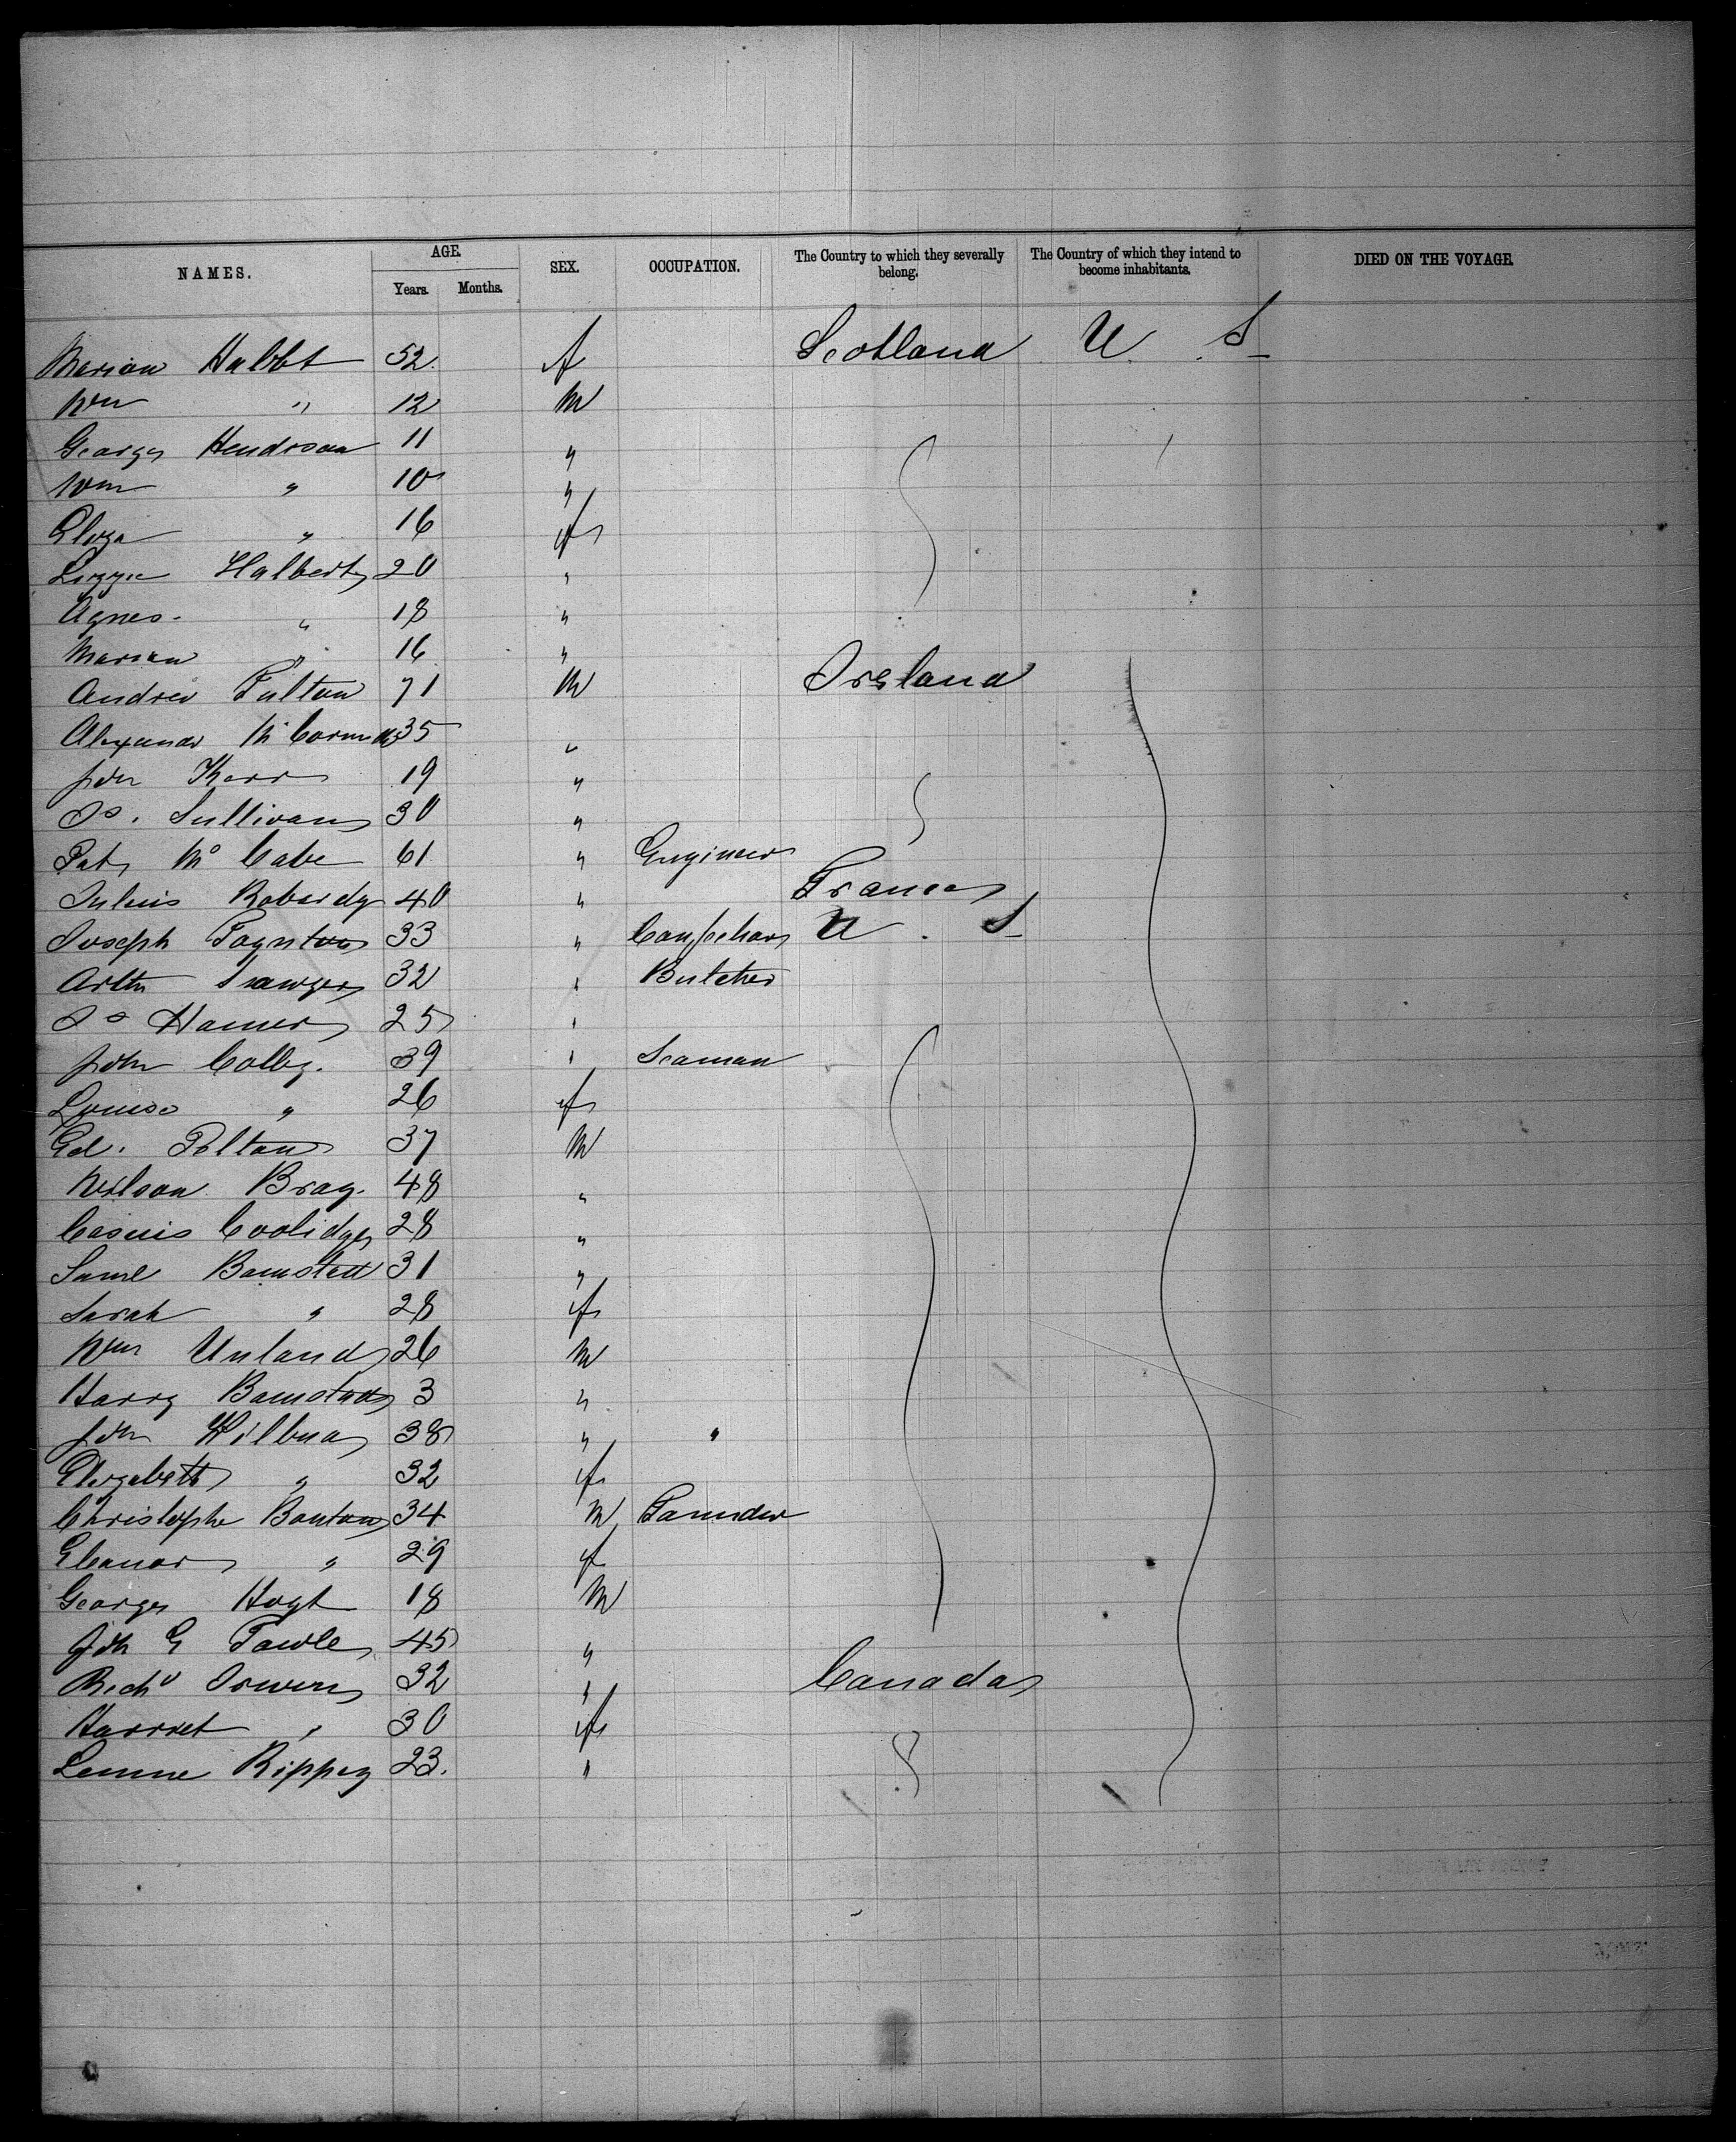 NAMES. AGE. SEX. OCCUPATION. The Country to which they severally belong. The Country of which they intend to become inhabitants. DIED ON THE VOYAGE
Years. Months.
Marian Halbt 52. f Scotland U. S
Wm " 12 M
George Hendrson 11 "
Wm " 10 "
Eliza " 16 f
Lizzie Halbert 20 "
Agnes. " 18 "
Marian " 16 "
Andrew Fulton 71 M Ireland
Alexander 35 "
John Kerr 19 "
Js. Sullivan 30 "
Pat Mc Cabe 61 " Engineer
Julius Robardy 40 " France
Joseph Poynton 33 " U. S
Arthr 32 " Butcher
Js Hamer 25 "
John Colby. 39 " Seaman
Louisa " 26 f
Ed. Poltan 37 M
Wilson Bray. 48 "
Casius Coolidge 28 "
Saml Bamstett 31 "
Sarah " 28 f
Wm Unland 26 M
Harry 3 "
John Wilbua 38 " "
Elizabeth " 32 f
Christophe Bontan 34 M
Eleanor " 29 f
George Hoyt 18 M
Jon G Fowle 45 "
Richd Irwin 32 " Canada
Harriet " 30 f
Rippey 23. "